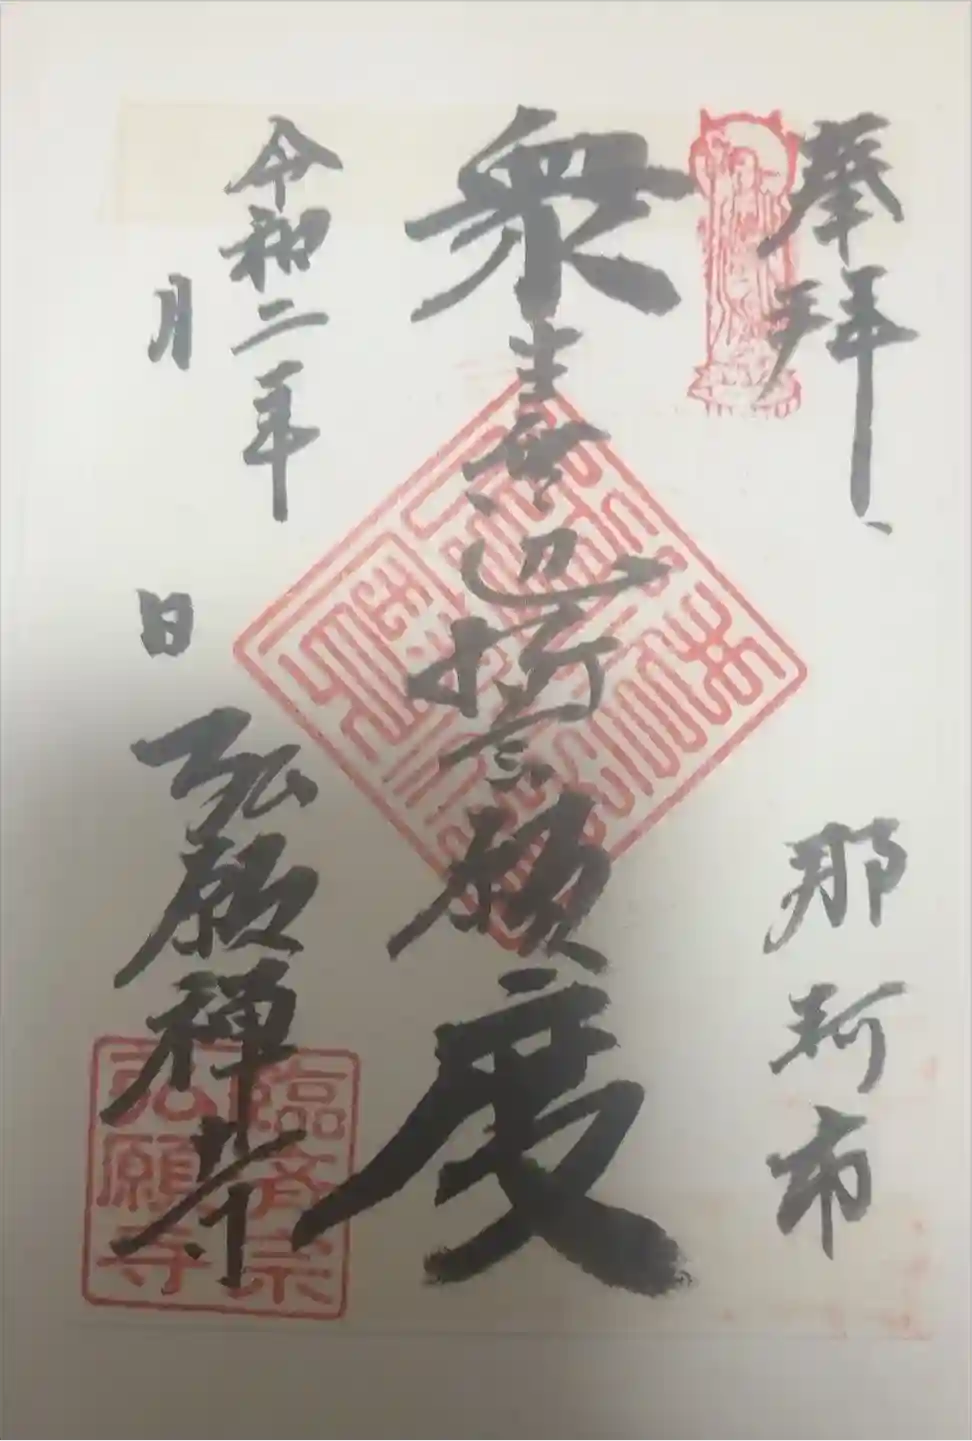 奉拝
那珂市
衆生無辺誓願度
令和二年
月 日
弘願禅寺
臨済宗
弘願寺